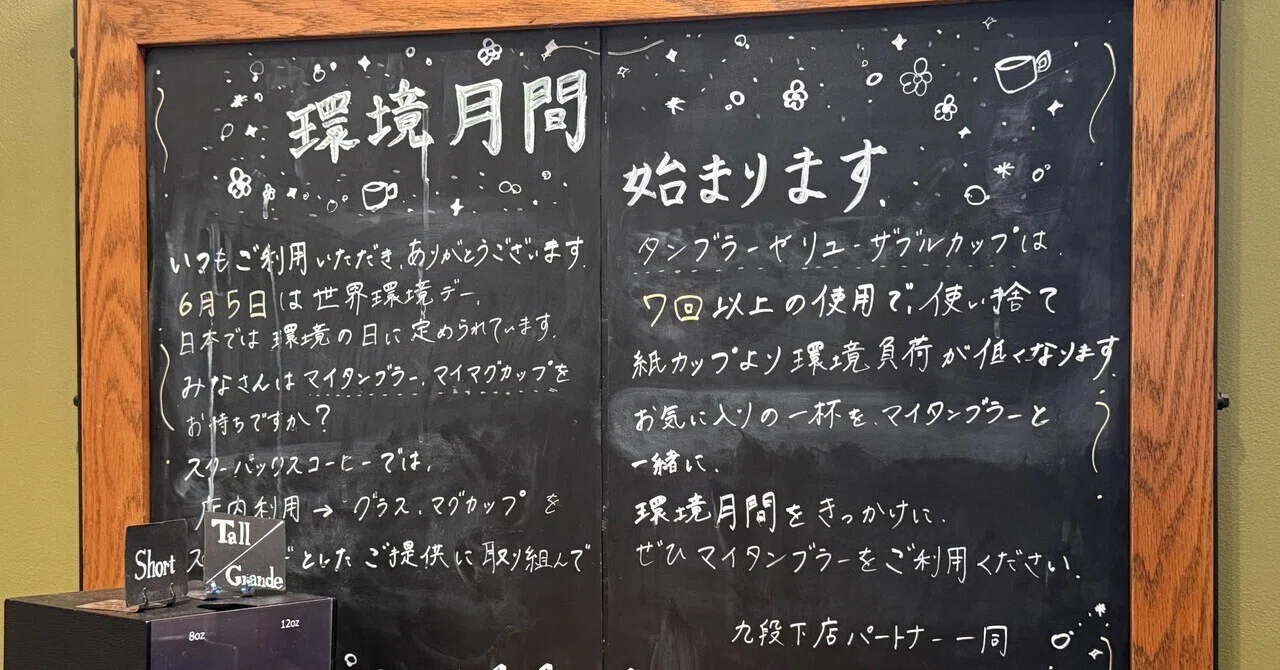 環境月間
始まります.
いつもご利用いただき、ありがとうございます.
6月5日は世界環境デー、
日本では環境の日に定められています.
みなさんはマイタンブラー、マイマグカップを
お持ちですか?
スターバックスコーヒーでは、
店内利用→グラス、マグカップを
としたご提供に取り組んで
タンブラーやリユーザブルカップは、
7回以上の使用で、使い捨て
紙カップより環境負荷が低くなります.
お気に入りの一杯を、マイタンブラーと
一緒に、
環境月間をきっかけに、
ぜひマイタンブラーをご利用ください.
九段下店パートナー一同
Short
Tall
Grande
8oz
12oz